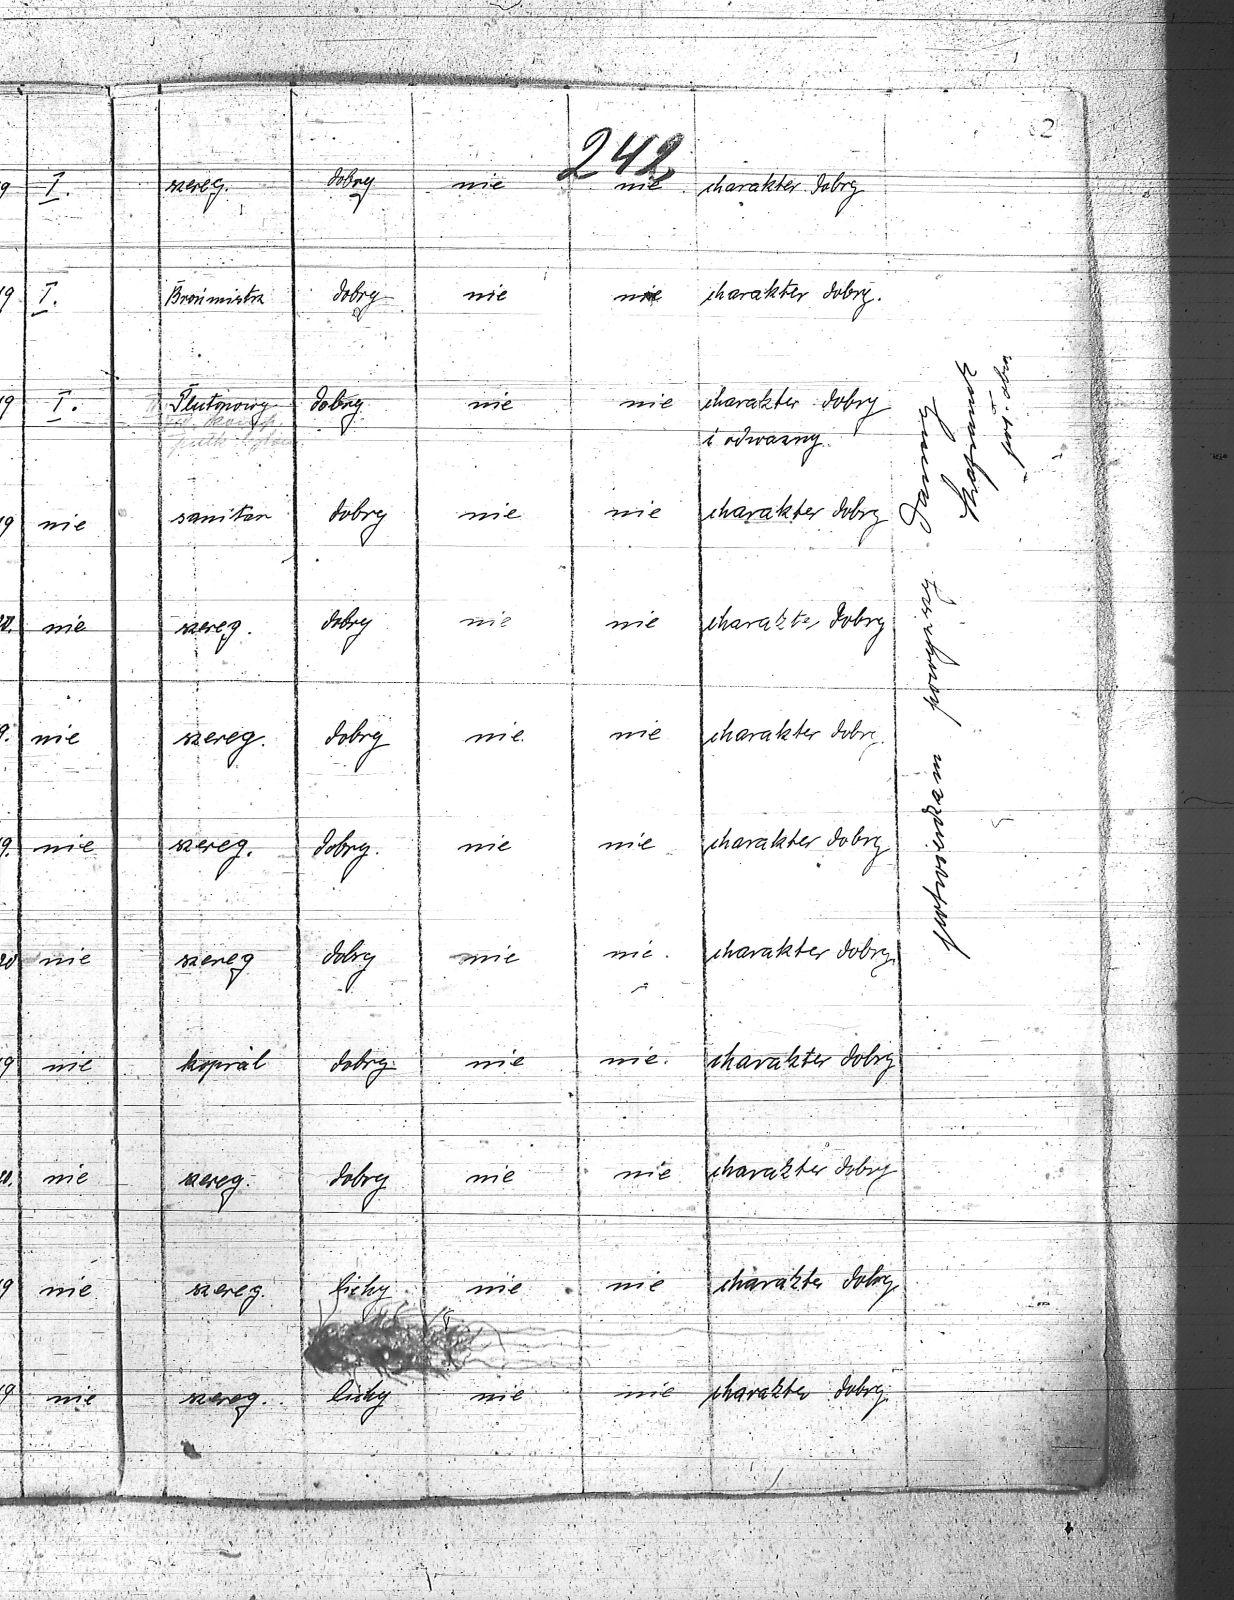 242
2
9 I. szereg. dobry nie nie charakter dobry
19 I. Bronmistrz dobry nie nie charakter dobry.
19 I. Plutonowy dobry nie nie charakter dobry
i odwazny.
19 nie sanitar dobry nie nie charakter dobry
nie szereg. dobry nie nie charakter dobry
9. nie szereg. dobry nie. nie charakter dobry.
9. nie szereg. dobry. nie nie charakter dobry
20 nie szereg dobry nie nie. charakter dobry.
19 nie kopral dobry nie nie. charakter dobry
nie szereg. dobry nie nie charakter dobry
19 nie szereg. lichy nie nie charakter dobry
19 nie szereg. lichy nie nie charakter dobry.
potwierdzam powyższe dane